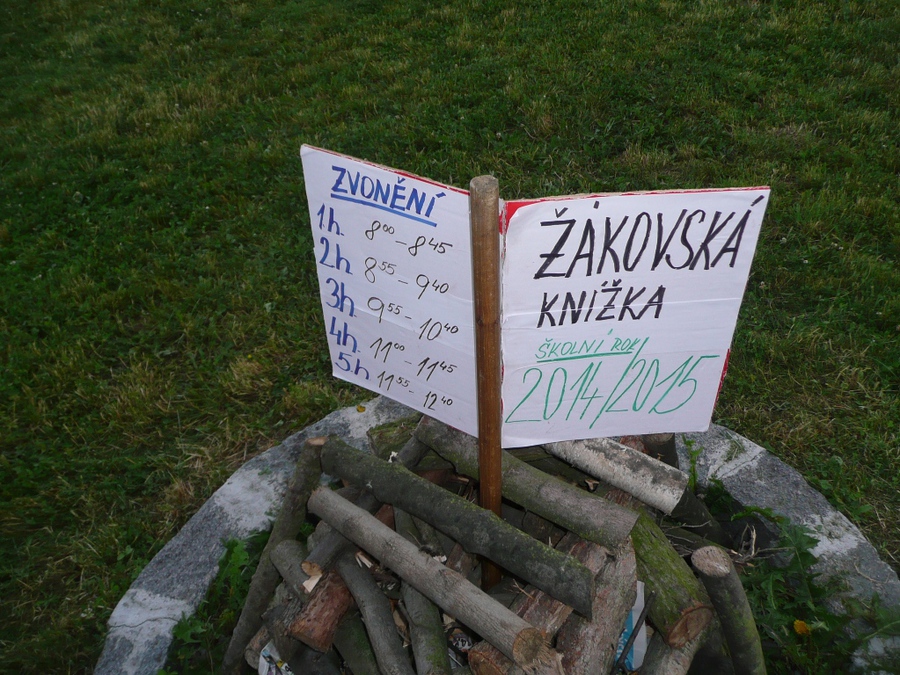 ZVONĚNÍ
1h. 8⁰⁰ - 8⁴⁵
2h. 8⁵⁵ - 9⁴⁰
3h. 9⁵⁵ - 10⁴⁰
4h. 11⁰⁰ - 11⁴⁵
5h. 11⁵⁵ - 12⁴⁰
ŽÁKOVSKÁ
KNÍŽKA
ŠKOLNÍ ROK
2014/2015